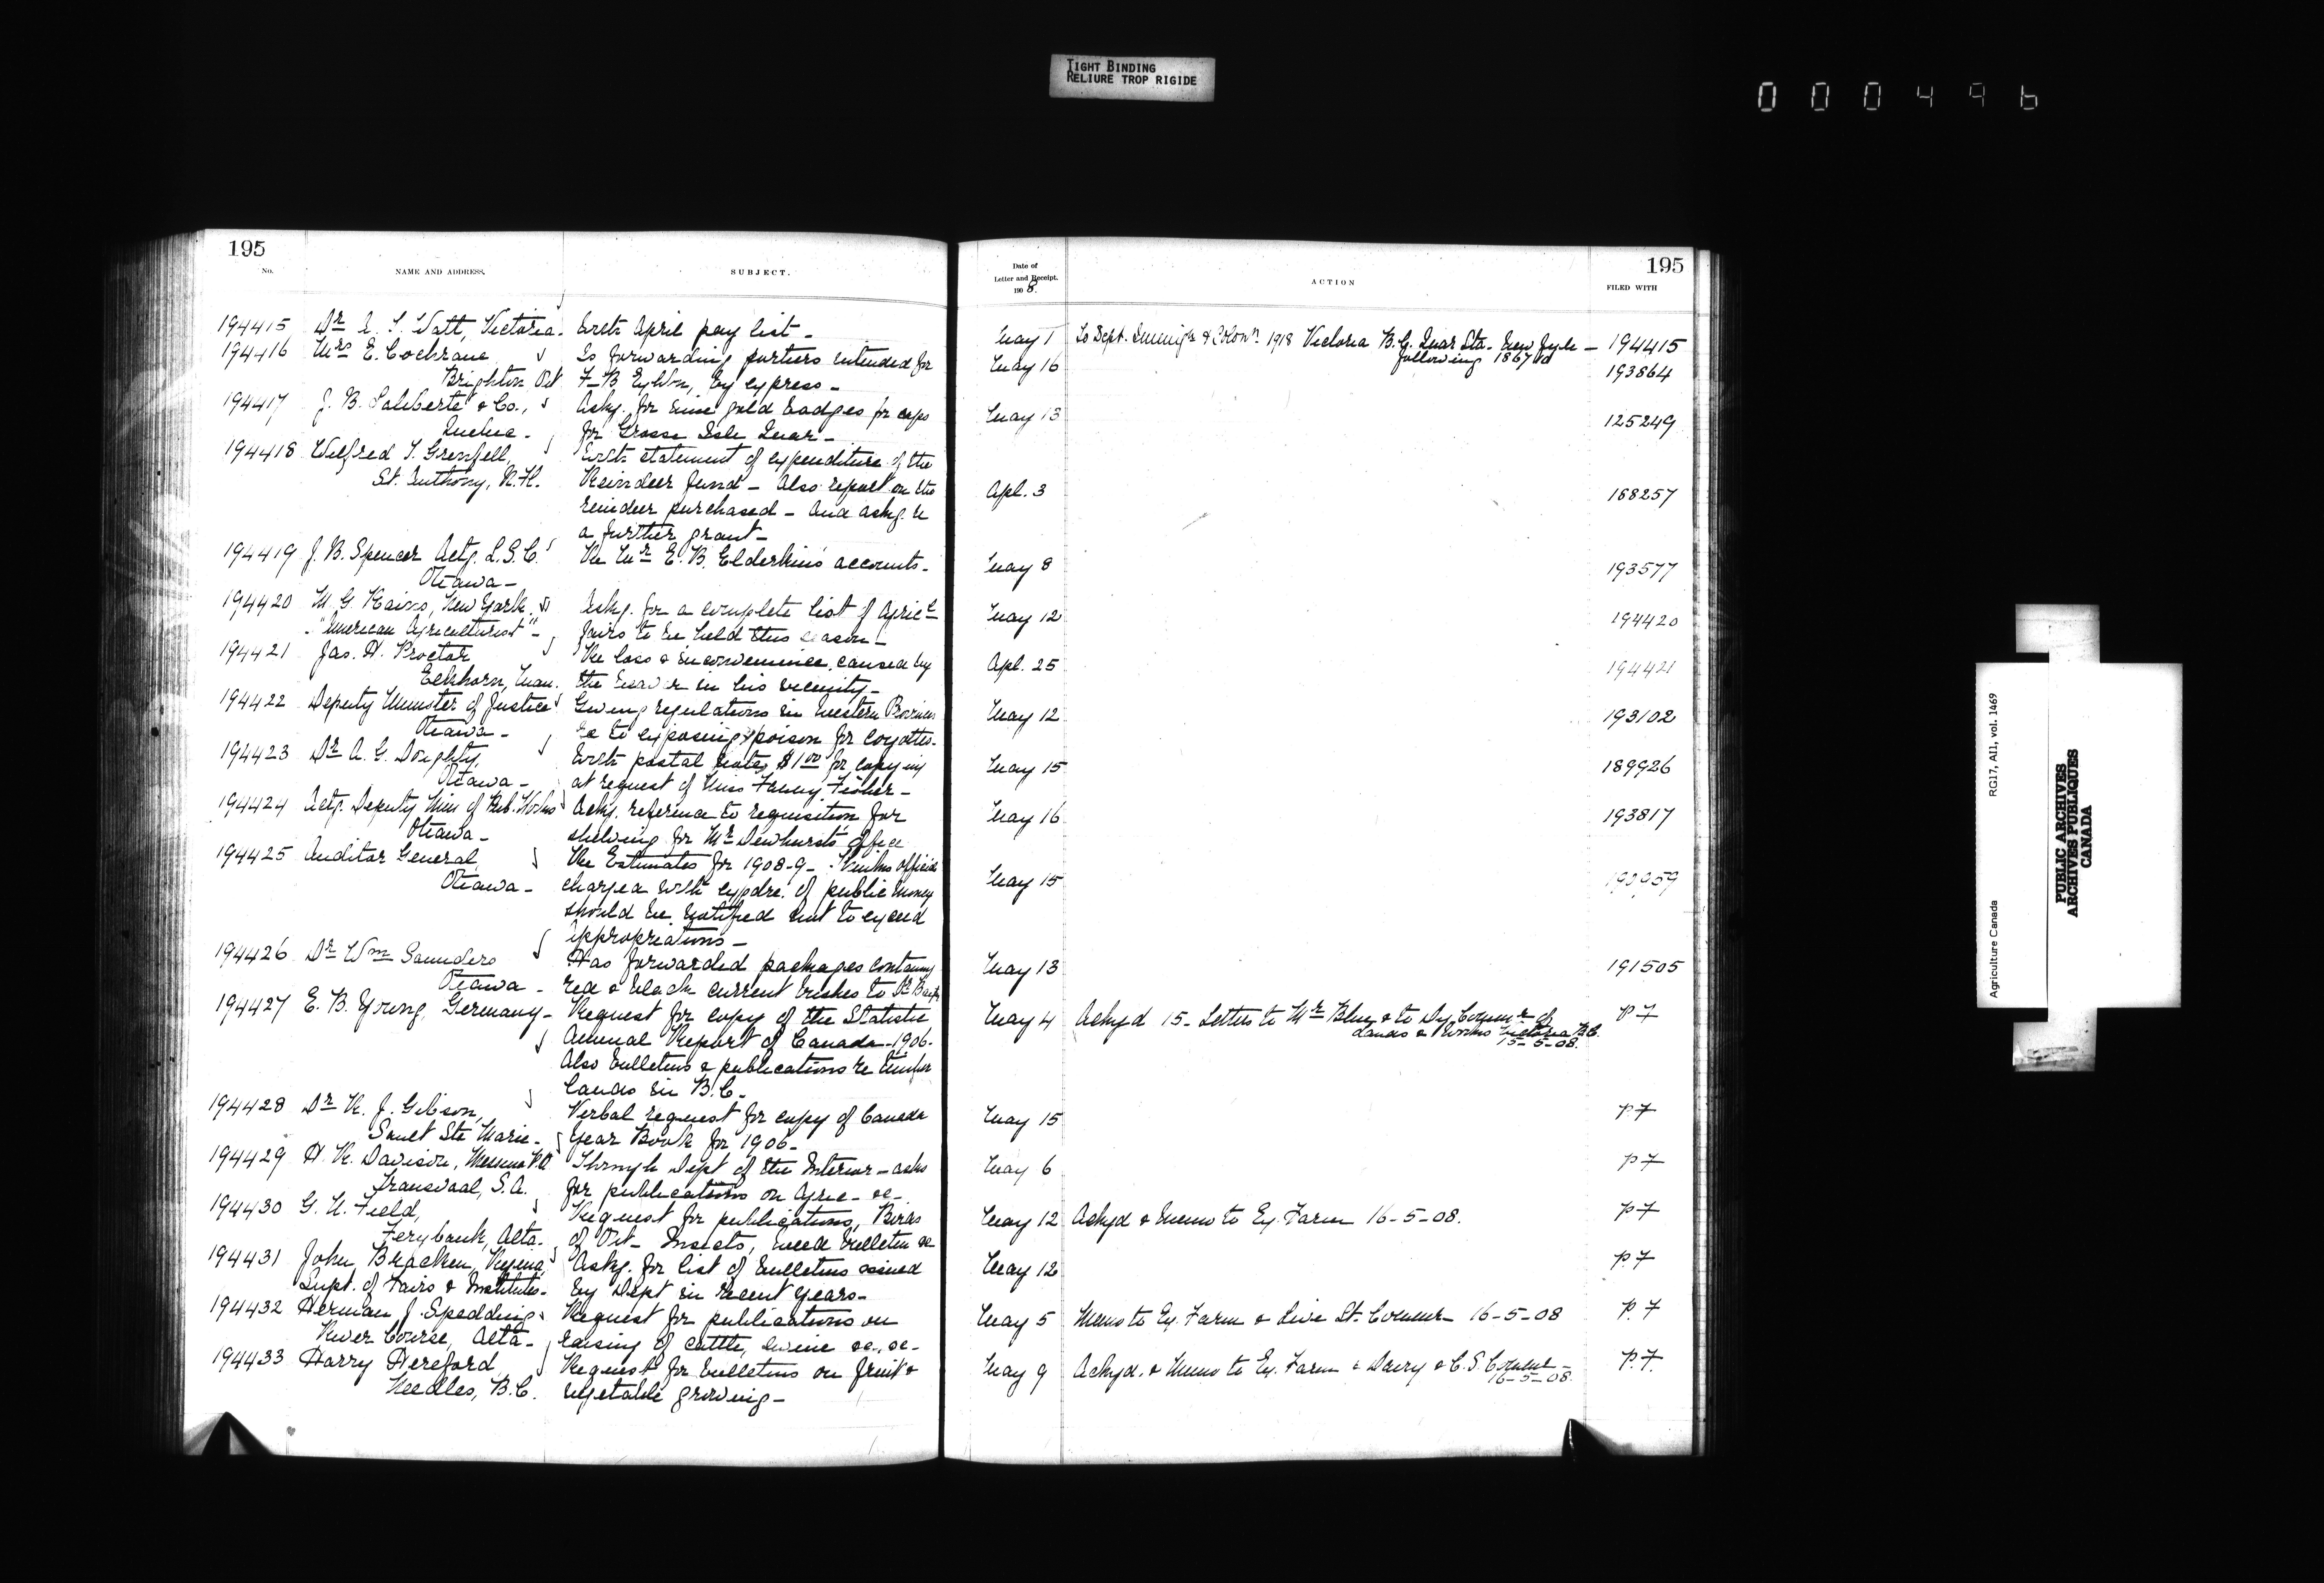 TIGHT BINDING
RELIURE TROP RIGIDE
000496
195
No.
NAME AND ADDRESS.
SUBJECT.
194415 Dr A. T. Watt, Victoria. Encls April pay list -
194416 Mrs E. Cochrane Is forwarding further intended for
Brighton Ont F-B Exhbn, by express -
194417 J. B. Laliberte & Co., Askg. for nine gold badges for caps
Quebec - for Grosse Isle Quar -
194418 Wilfred T. Grenfell, Encls statement of expenditure of the
St. Anthony, N.F. Reindeer fund - Also report on the
reindeer purchased - And askg.
a further grant -
194419 J. B. Spencer Actg. L.S.C. Re Mr E. B. Elderkin's accounts -
Ottawa -
194420 M. G. Kains, New York, Askg. for a complete list of Agricl
- "American Agriculturist" - fairs to be held this season -
194421 Jas. H. Proctor Re loss & inconvenience caused by
Elkhorn, Man. the in his vicinity -
194422 Deputy Minister of Justice Giving regulations in Western Provinces
Ottawa - re to exposing poison for coyottes -
194423 Dr A. G. Doughty, Encls postal note, $1.00 for copying
Ottawa - at request of Miss Fanny Fisher -
194424 Actg. Deputy Min of Pub. Works Askg. reference to requisition for
Ottawa - shelving for Mr Dewhurst's office
194425 Auditor General, Re Estimates for 1908-9 - Thinks officials
Ottawa - charged with expdre. of public money
should be notified not to exceed
appropriations -
194426 Dr Wm Saunders Has forwarded packages containing
Ottawa - red & black current bushes to Dr
194427 E. B. Young, Germany - Request for copy of the Statistic
Annual Report of Canada - 1906 -
Also bulletins & publications re timber
lands in B.C. -
194428 Dr R. J. Gibson, Verbal request for copy of Canada
Sault Ste Marie - Year Book for 1906 -
194429 H. R. Davison, Messina P.O. Through Dept of the Interior - asks
Transvaal, S.A. for publications on Agric - &c -
194430 G. N. Field, Request for publications, Birds
Ferybank, Alta. of Ont - Insects, weed bulletin &c
194431 John Bracken, Regina, Askg. for list of bulletins issued
Supt. of Fairs & Institutes - by Dept in recent years -
194432 Herman J. Spedding Request for publications on
River Course, Alta - raising of cattle, swine &c., &c -
194433 Harry Hereford Request for bulletins on fruit &
Needles, B.C. vegetable growing -
195
Date of
Letter and Receipt.
1908.
ACTION
FILED WITH
May 1 To Dept. Immign & Colonn 1918 Victoria B.C. Quar Sta - New Jyle - 194415
following 186710
May 16 193864
May 13 125249
Apl. 3 168257
May 8 193577
May 12 194420
Apl. 25 194421
May 12 193102
May 15 189926
May 16 193817
May 15
May 13 191505
May 4 Ackgd 15 - Letters to Mr Blue & to Dy Commr of P 7
Lands & Works Victoria B.C.
15-5-08.
May 15 P 7
May 6 P 7
May 12 Ackgd & Memo to Ex. Farm 16-5-08. P 7
May 12 P 7
May 5 Memo to Ex. Farm & Live St. Commr - 16-5-08 P. 7
May 9 Ackgd. & Memo to Ex. Farm & Dairy & C.S. Commr - P. 7
16-5-08.
Agriculture Canada RG17, AII, vol. 1469
PUBLIC ARCHIVES
ARCHIVES PUBLIQUES
CANADA